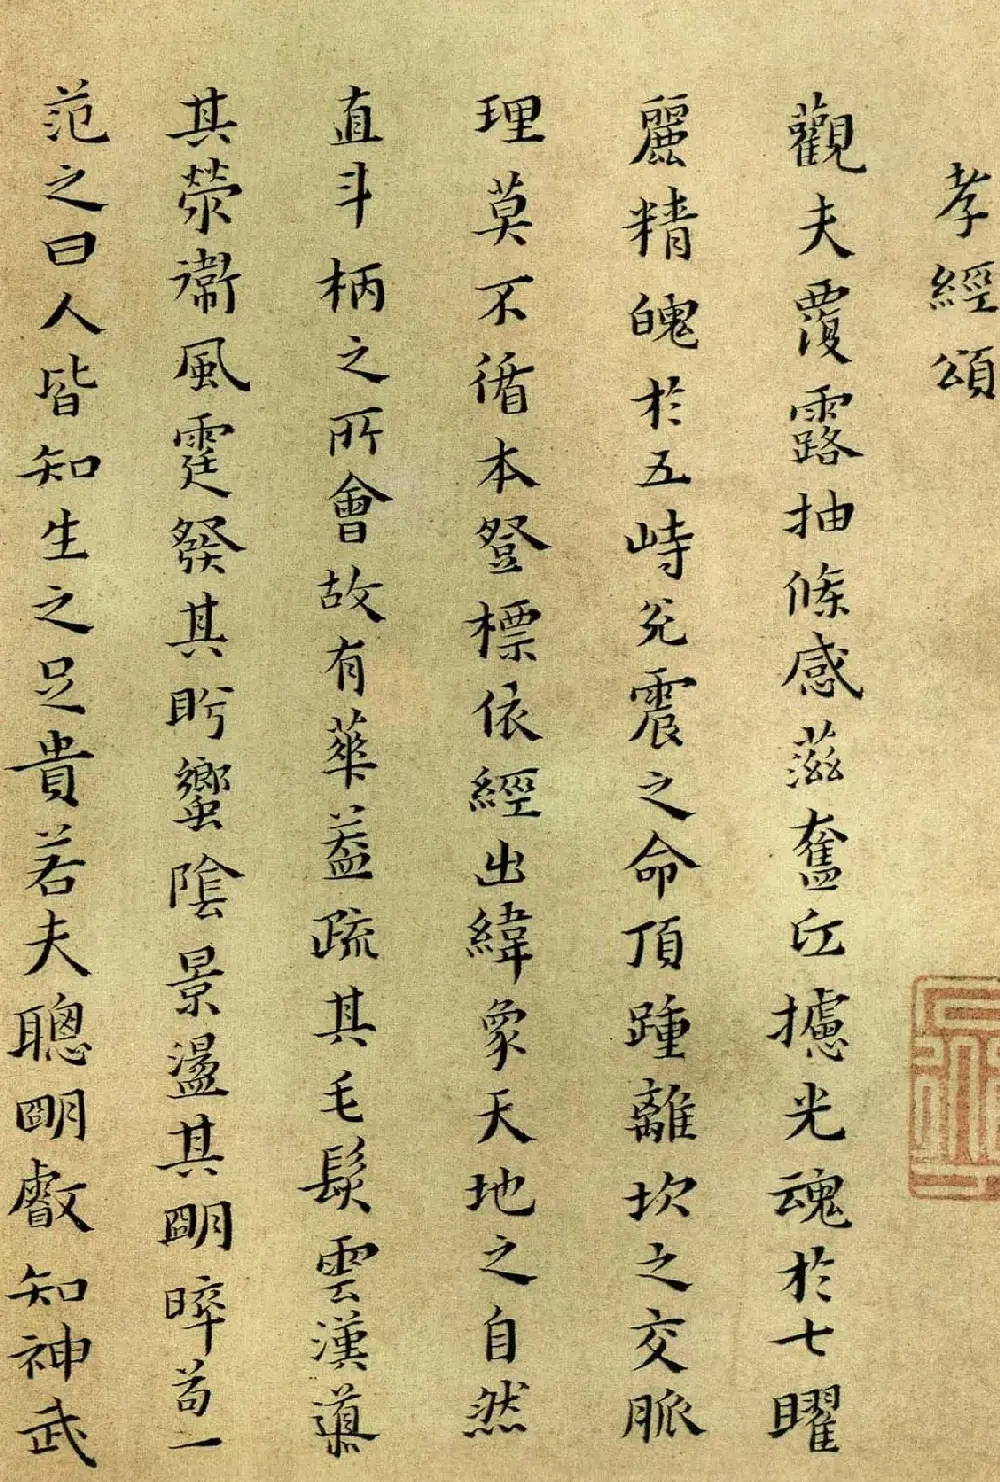 孝經頌
觀夫覆露抽條感滋奮丘攄光魂於七曜
麗精魄於五峙兊震之命頂踵離坎之交脈
理莫不循本登標依經出緯象天地之自然
直斗柄之所會故有華葢疏其毛髮雲漢
其滎衞風霆發其盻蠁陰景盪其朙晬茍一
范之曰人皆知生之足貴若夫聰朙叡知神武